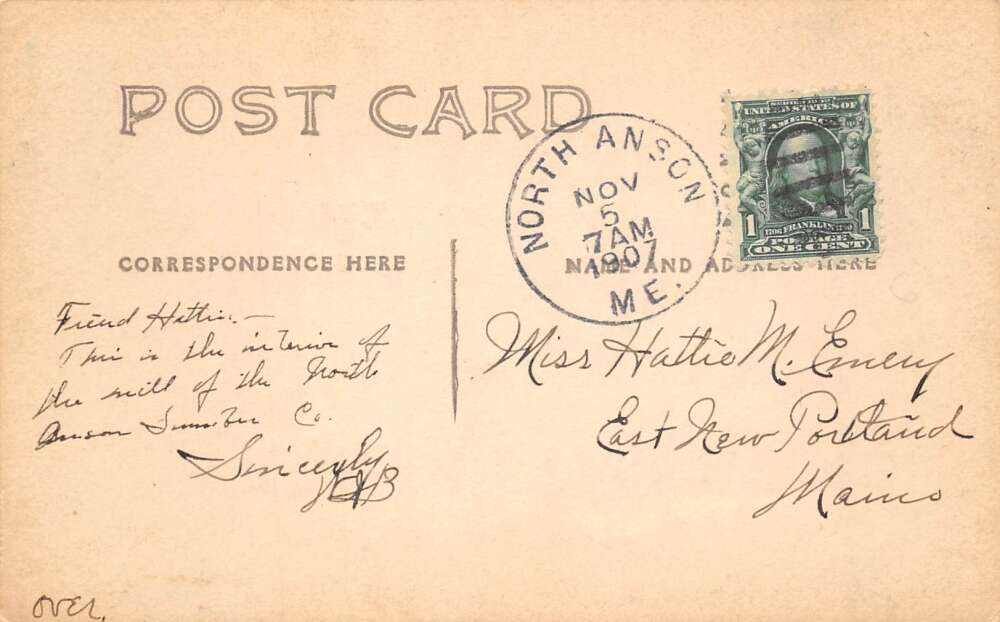 POST CARD
NORTH ANSON
NOV
5
7 AM
1907
ME.
SERIES 1902
UNITED STATES OF
AMERICA
1 1706 FRANKLIN 1790 1
POSTAGE
ONE CENT
CORRESPONDENCE HERE
NAME AND ADDRESS HERE
Friend Hattie:—
This is the interior of
the mill of the North
Anson Lumber Co.
Sincerely
Miss Hattie M. Emery
East New Portland
Maine
OVER.